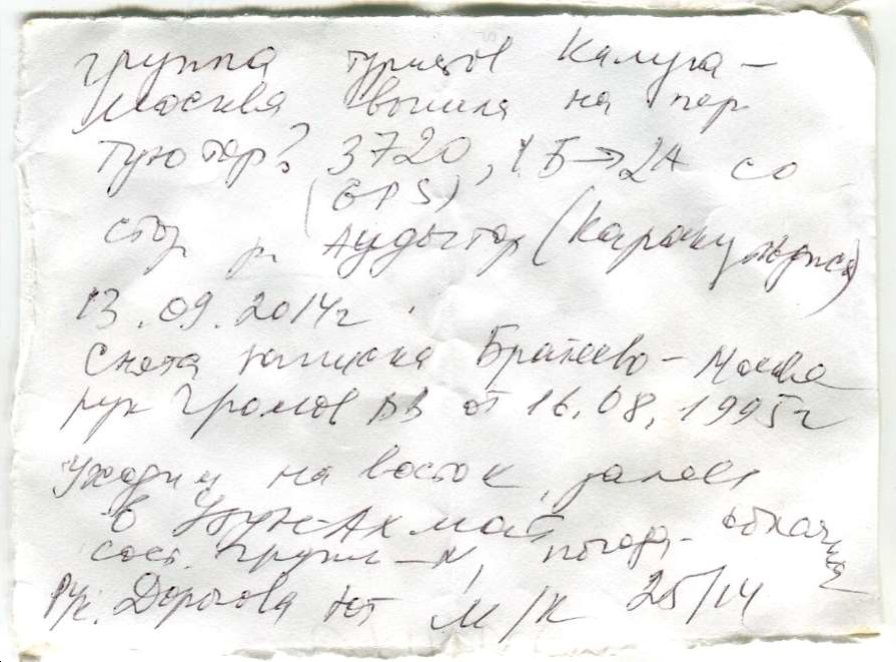 группа туристов Калуга –
Москва вышла на пер
Туютор? 3720, 1Б→2А со
(GPS)
стор р. Аудытор (Каракульджа)
13.09.2014г.
Снята записка Братеево – Москва
рук Громов ВВ от 16.08.1995г
Уходим на восток, далее
в Узун-Ахмат
сост. групп – N, погода – облачная
Рук. Дорогова ЮТ м/к 25/14